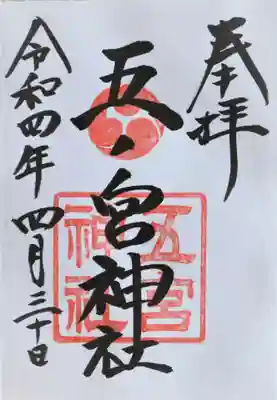 奉拝
五ノ宮神社
五宮神社
令和四年四月三十日